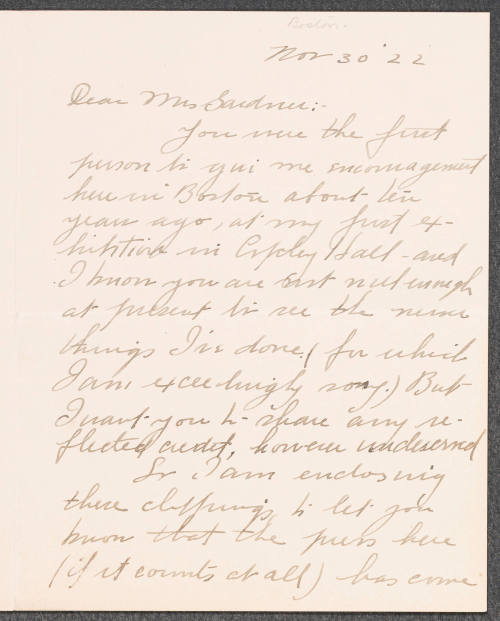 Boston.
Nov 30 '22
Dear Mrs Gardner:-
You were the first
person to give me encouragement
here in Boston about ten
years ago, at my first ex-
hibition in Copley Hall - and
I know you are not well enough
at present to see the
things I've done. (for which
I am exceedingly sorry.) But
I want you to share any re-
flected credit, however undeserved
So I am enclosing
these clippings, to let you
know that the press here
(if it counts at all) has come